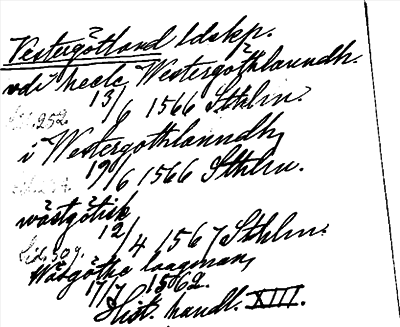 Vestergötland ldskp.
udi heele Westergöthlanndh.
13/6 1566 Sthlm.
sid. 252.
i Westergothlanndh,
19/6 1566 Sthlm.
wästgötisk
12/4 1567 Sthlm.
sid. 309.
Wäsgöthe laagman,
17/7 1562.
Hist. handl. XIII.